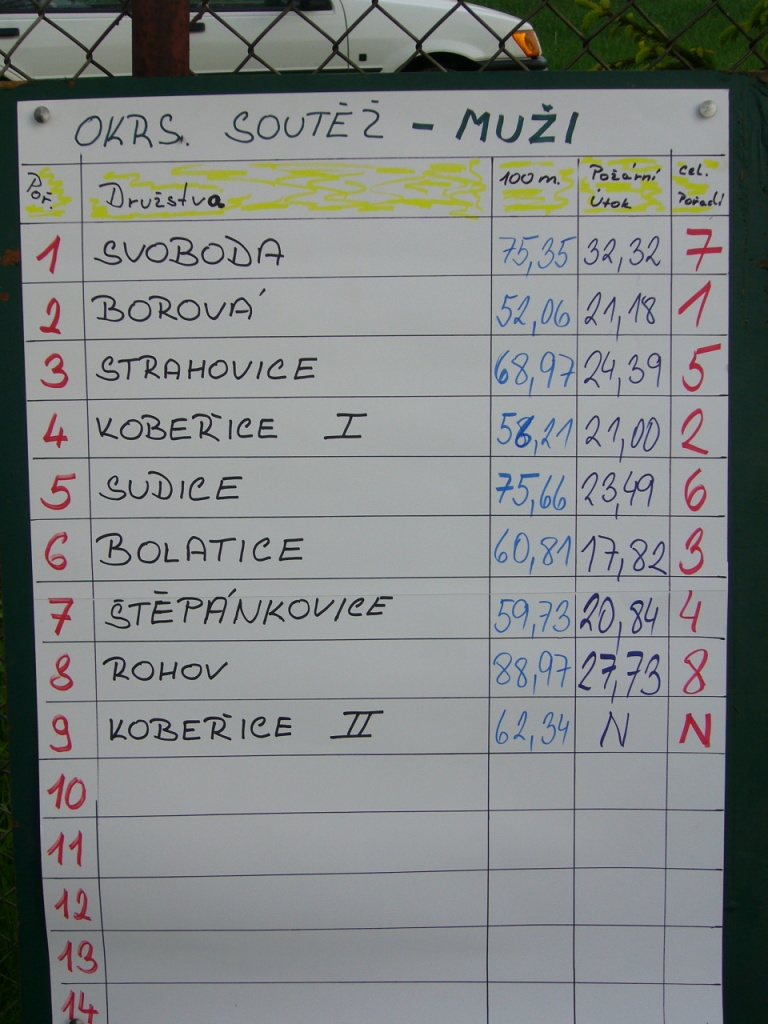 OKRS. SOUTĚŽ - MUŽI
Poř. Družstva 100 m. Požární Útok cel. Pořadí
1 SVOBODA 75,35 32,32 7
2 BOROVÁ 52,06 21,18 1
3 STRAHOVICE 68,97 24,39 5
4 KOBEŘICE I 58,21 21,00 2
5 SUDICE 75,66 23,49 6
6 BOLATICE 60,81 17,82 3
7 ŠTĚPÁNKOVICE 59,73 20,84 4
8 ROHOV 88,97 27,73 8
9 KOBEŘICE II 62,34 N N
10
11
12
13
14